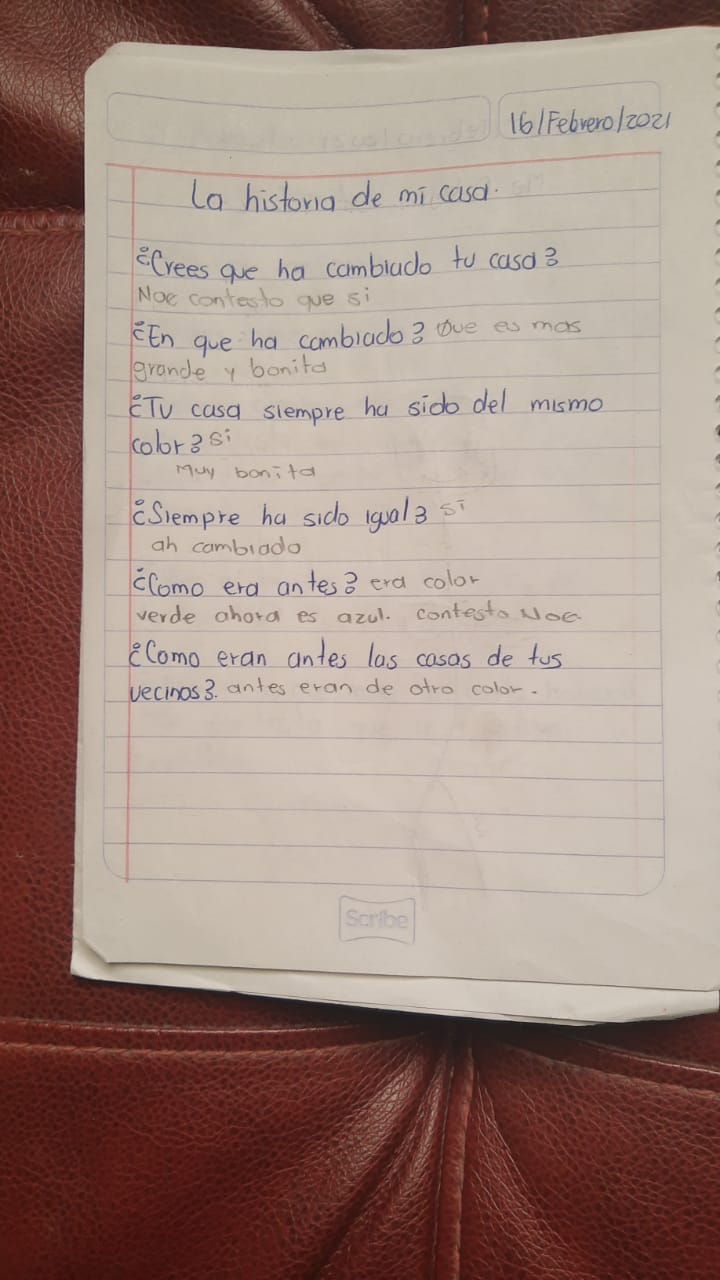 16/Febrero/2021
La historia de mi casa.
¿Crees que ha cambiado tu casa?
Noe contesto que si
¿En que ha cambiado? Que es mas
grande y bonita
¿Tu casa siempre ha sido del mismo
color? si
Muy bonita
¿Siempre ha sido igual? si
ah cambiado
¿Como era antes? era color
verde ahora es azul. contesto Noe.
¿Como eran antes las casas de tus
vecinos?. antes eran de otro color.
Scribe